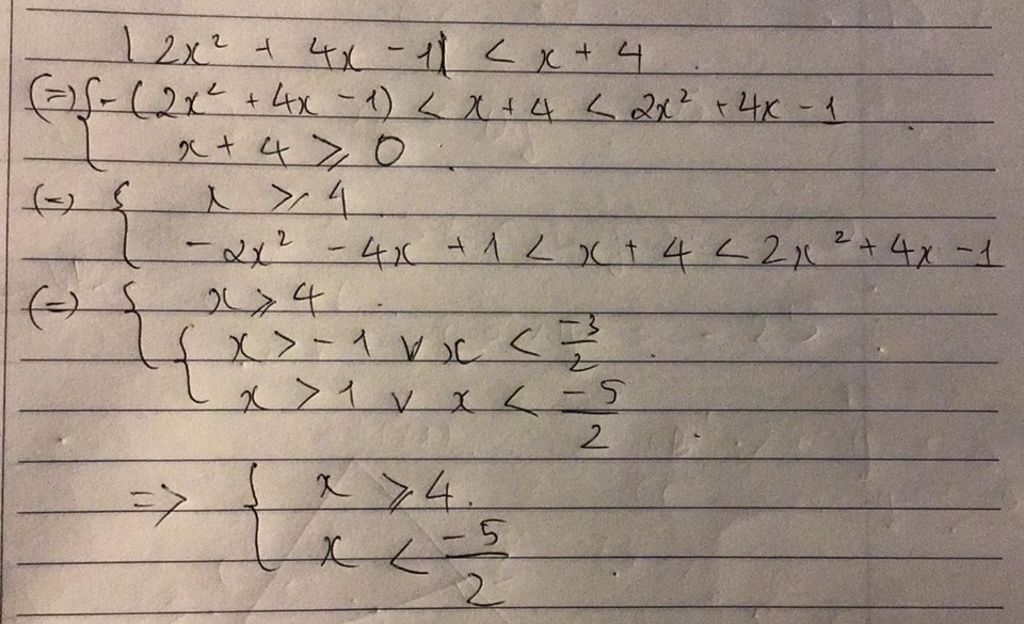 |2x² + 4x - 1| < x + 4
(=) { - (2x² + 4x - 1) < x + 4 < 2x² + 4x - 1
x + 4 ⩾ 0
(=) { x ⩾ 4
-2x² - 4x + 1 < x + 4 < 2x² + 4x - 1
(=) { x ⩾ 4
{ x > -1 v x < -3/2
x > 1 v x < -5/2
=> { x ⩾ 4.
x < -5/2